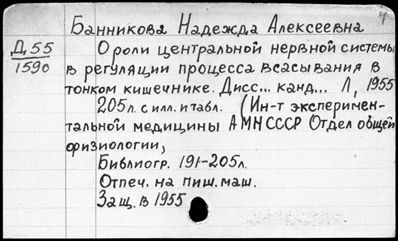 Банникова Надежда Алексеевна
Д 55
1590
О роли центральной нервной системы
в регуляции процесса всасывания в
тонком кишечнике. Дисс... канд... Л, 1955
205л. с илл. и табл. (Ин-т эксперимен-
тальной медицины АМН СССР Отдел общей
физиологии)
Библиогр. 191-205л.
Отпеч. на пиш. маш.
Защ. в 1955